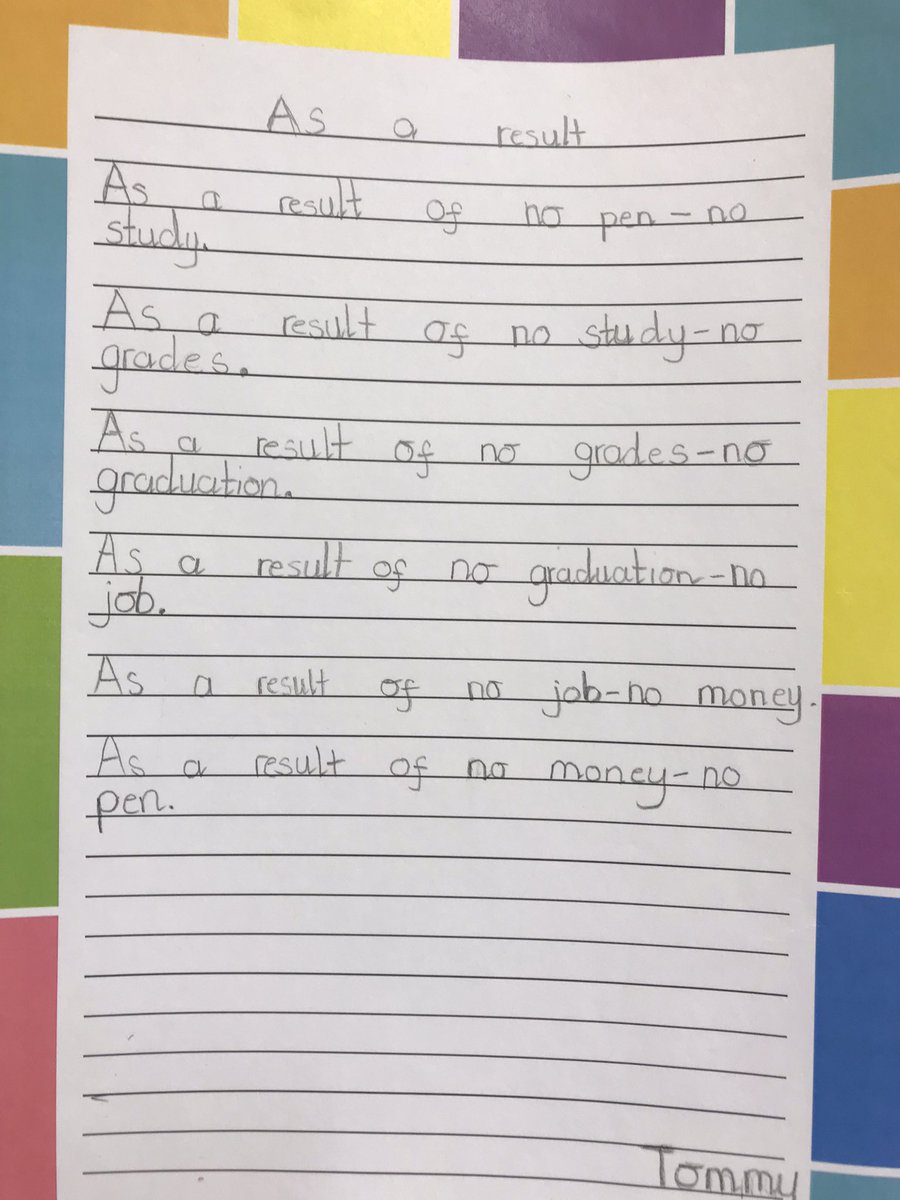 As a result
As a result of no pen - no
study.
As a result of no study - no
grades.
As a result of no grades - no
graduation.
As a result of no graduation - no
job.
As a result of no job - no money.
As a result of no money - no
pen.
Tommy